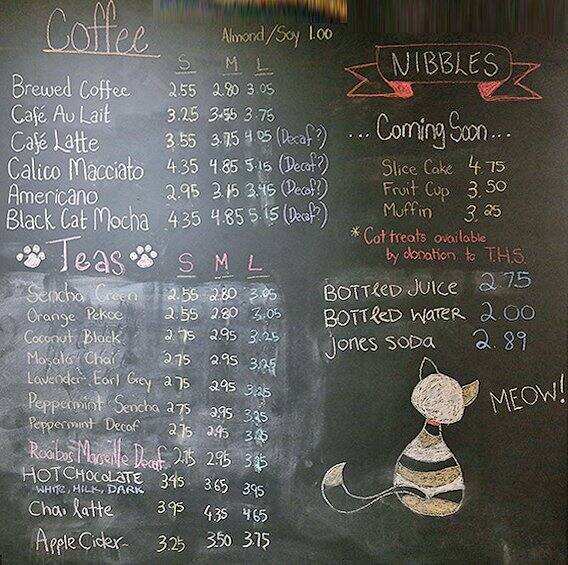 Coffee
Almond/Soy 1.00
S M L
Brewed Coffee 2.55 2.80 3.05
Café Au Lait 3.25 3.55 3.75
Café Latte 3.55 3.75 4.05 (Decaf?)
Calico Macciato 4.35 4.85 5.15 (Decaf?)
Americano 2.95 3.15 3.45 (Decaf?)
Black Cat Mocha 4.35 4.85 5.15 (Decaf?)
Teas S M L
Sencha Green 2.55 2.80 3.05
Orange Pekoe 2.55 2.80 3.05
Coconut Black 2.75 2.95 3.25
Masala Chai 2.75 2.95 3.25
Lavender Earl Grey 2.75 2.95 3.25
Peppermint Sencha 2.75 2.95 3.25
Peppermint Decaf 2.75 2.95 3.25
Rooibos Marseille Decaf 2.75 2.95 3.25
HOT CHOCOLATE 3.45 3.65 3.95
WHITE, MILK, DARK
Chai latte 3.95 4.35 4.65
Apple Cider 3.25 3.50 3.75
NIBBLES
... Coming Soon...
Slice Cake 4.75
Fruit Cup 3.50
Muffin 3.25
* Cat treats available
by donation to T.H.S.
BOTTLED JUICE 2.75
BOTTLED WATER 2.00
JONES SODA 2.89
MEOW!